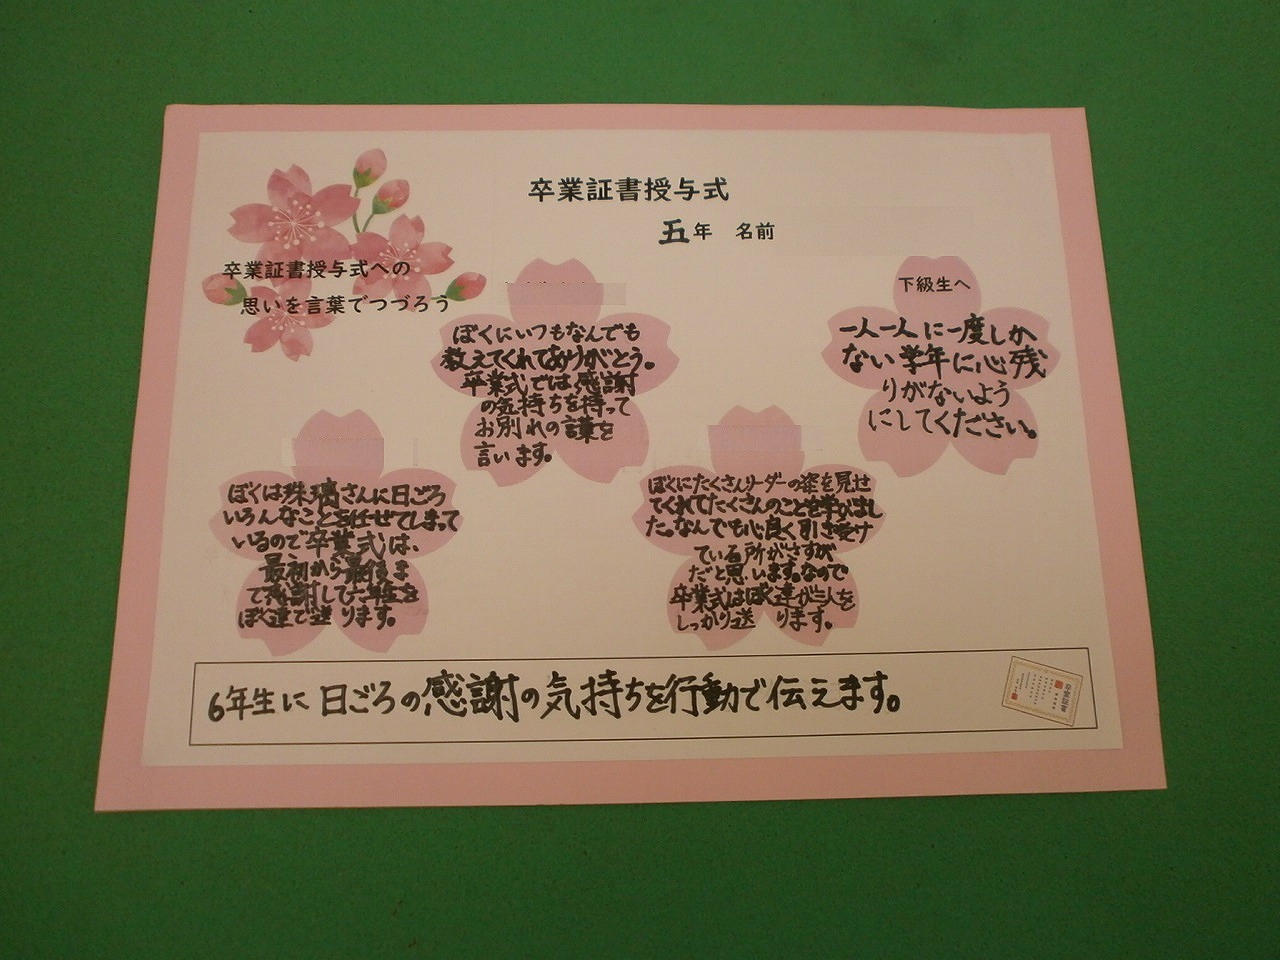 卒業証書授与式
五年 名前
卒業証書授与式への
思いを言葉でつづろう
ぼくにいつもなんでも
教えてくれてありがとう。
卒業式では感謝
の気持ちを持って
お別れの言葉を
言います。
下級生へ
一人一人に一度しか
ない学年に心残
りがないよう
にしてください。
ぼくは珠璃さんに日ごろ
いろんなことを任せてしまって
いるので卒業式は、
最初から最後ま
で感謝して六年生を
ぼく達で送ります。
ぼくにたくさんリーダーの姿を見せ
てくれてたくさんのことを学びまし
た。なんでも心良く引き受け
ている所がさすが
だと思います。なので
卒業式はぼく達が三人を
しっかり送ります。
6年生に日ごろの感謝の気持ちを行動で伝えます。